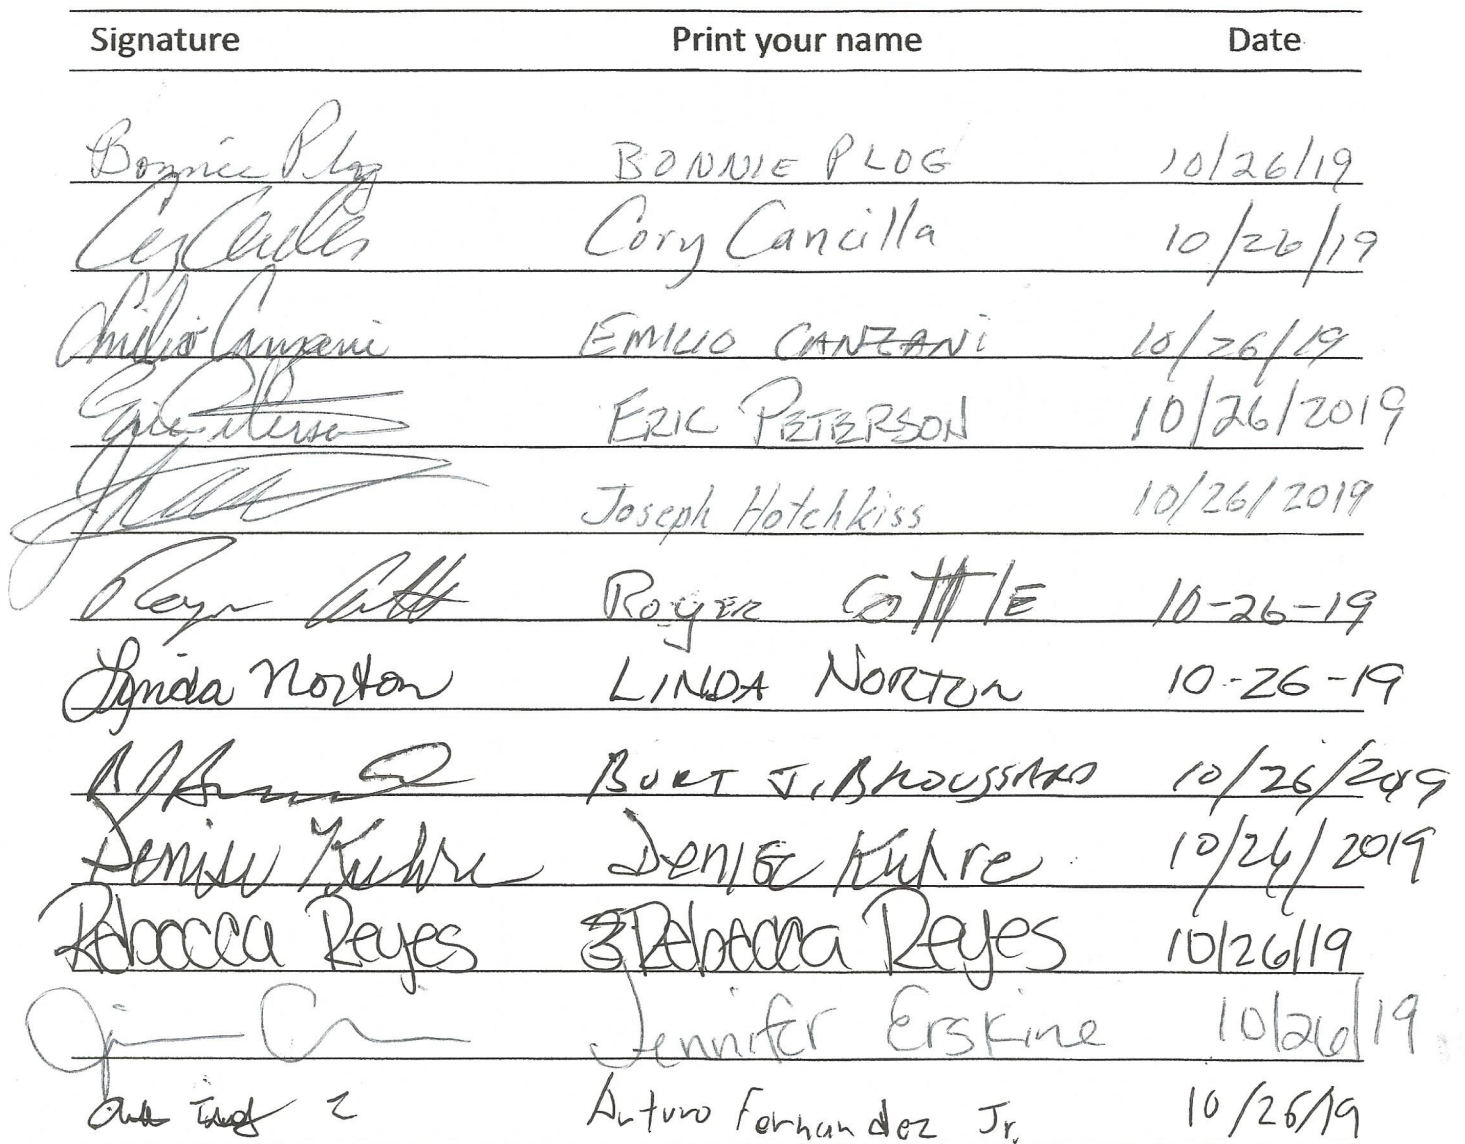 Signature Print your name Date
Bonnie Plog BONNIE PLOG 10/26/19
Cory Cancilla 10/26/19
Emilio Canzani EMILIO CANZANi 10/26/19
Eric Peterson ERIC PETERSON 10/26/2019
Joseph Hotchkiss 10/26/2019
Roger Cottle 10-26-19
Lynda Norton LINDA NORTON 10-26-19
BURT J. BROUSSARD 10/26/2019
Denise Kuhre Denise Kuhre 10/26/2019
Rebecca Reyes Rebecca Reyes 10/26/19
Jennifer Erskine 10/26/19
Arturo Fernandez Jr. 10/26/19